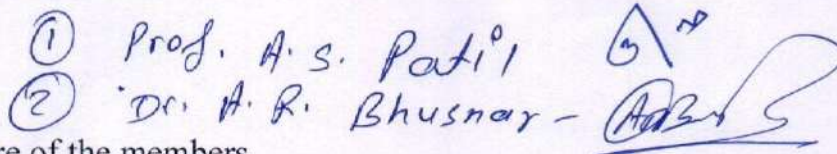 ① Prof. A. S. Patil
② Dr. A. R. Bhusnar -
re of the members